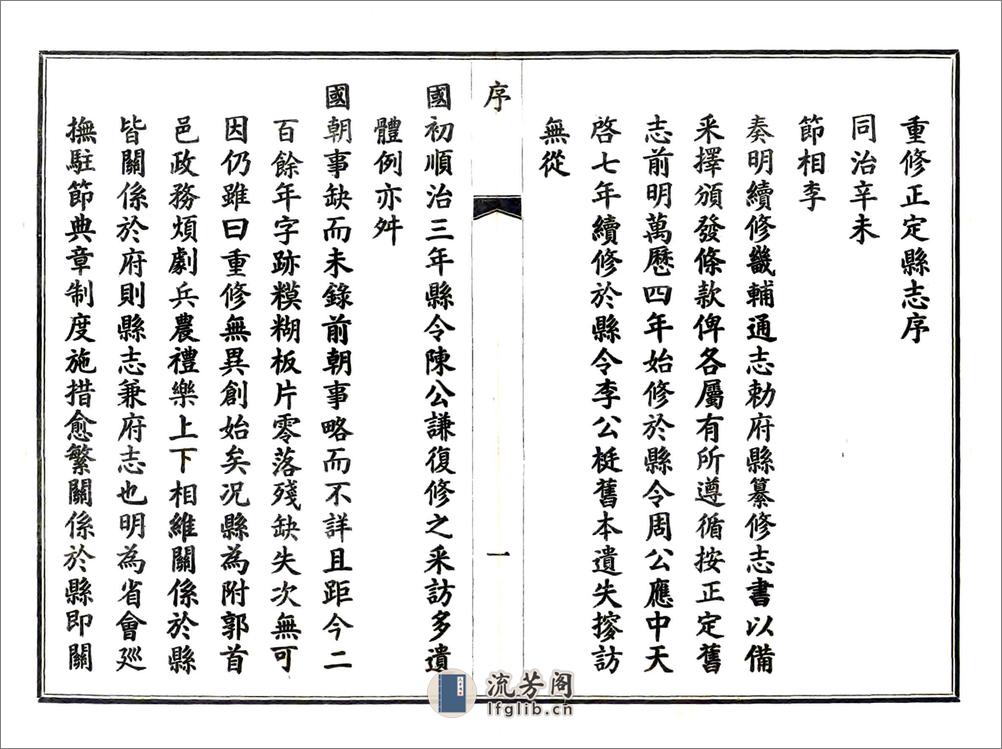 重修正定縣志序
同治辛未
節相李
奏明續修畿輔通志勅府縣纂修志書以備
采擇頒發條款俾各屬有所遵循按正定舊
志前明萬曆四年始修於縣令周公應中天
啓七年續修於縣令李公梃舊本遺失搜訪
無從
序
一
國初順治三年縣令陳公謙復修之采訪多遺
體例亦舛
國朝事缺而未錄前朝事略而不詳且距今二
百餘年字跡糢糊板片零落殘缺失次無可
因仍雖曰重修無異創始矣况縣為附郭首
邑政務煩劇兵農禮樂上下相維關係於縣
皆關係於府則縣志兼府志也明為省會廵
撫駐節典章制度施措愈繁關係於縣即關
流芳阁
lfglib.cn